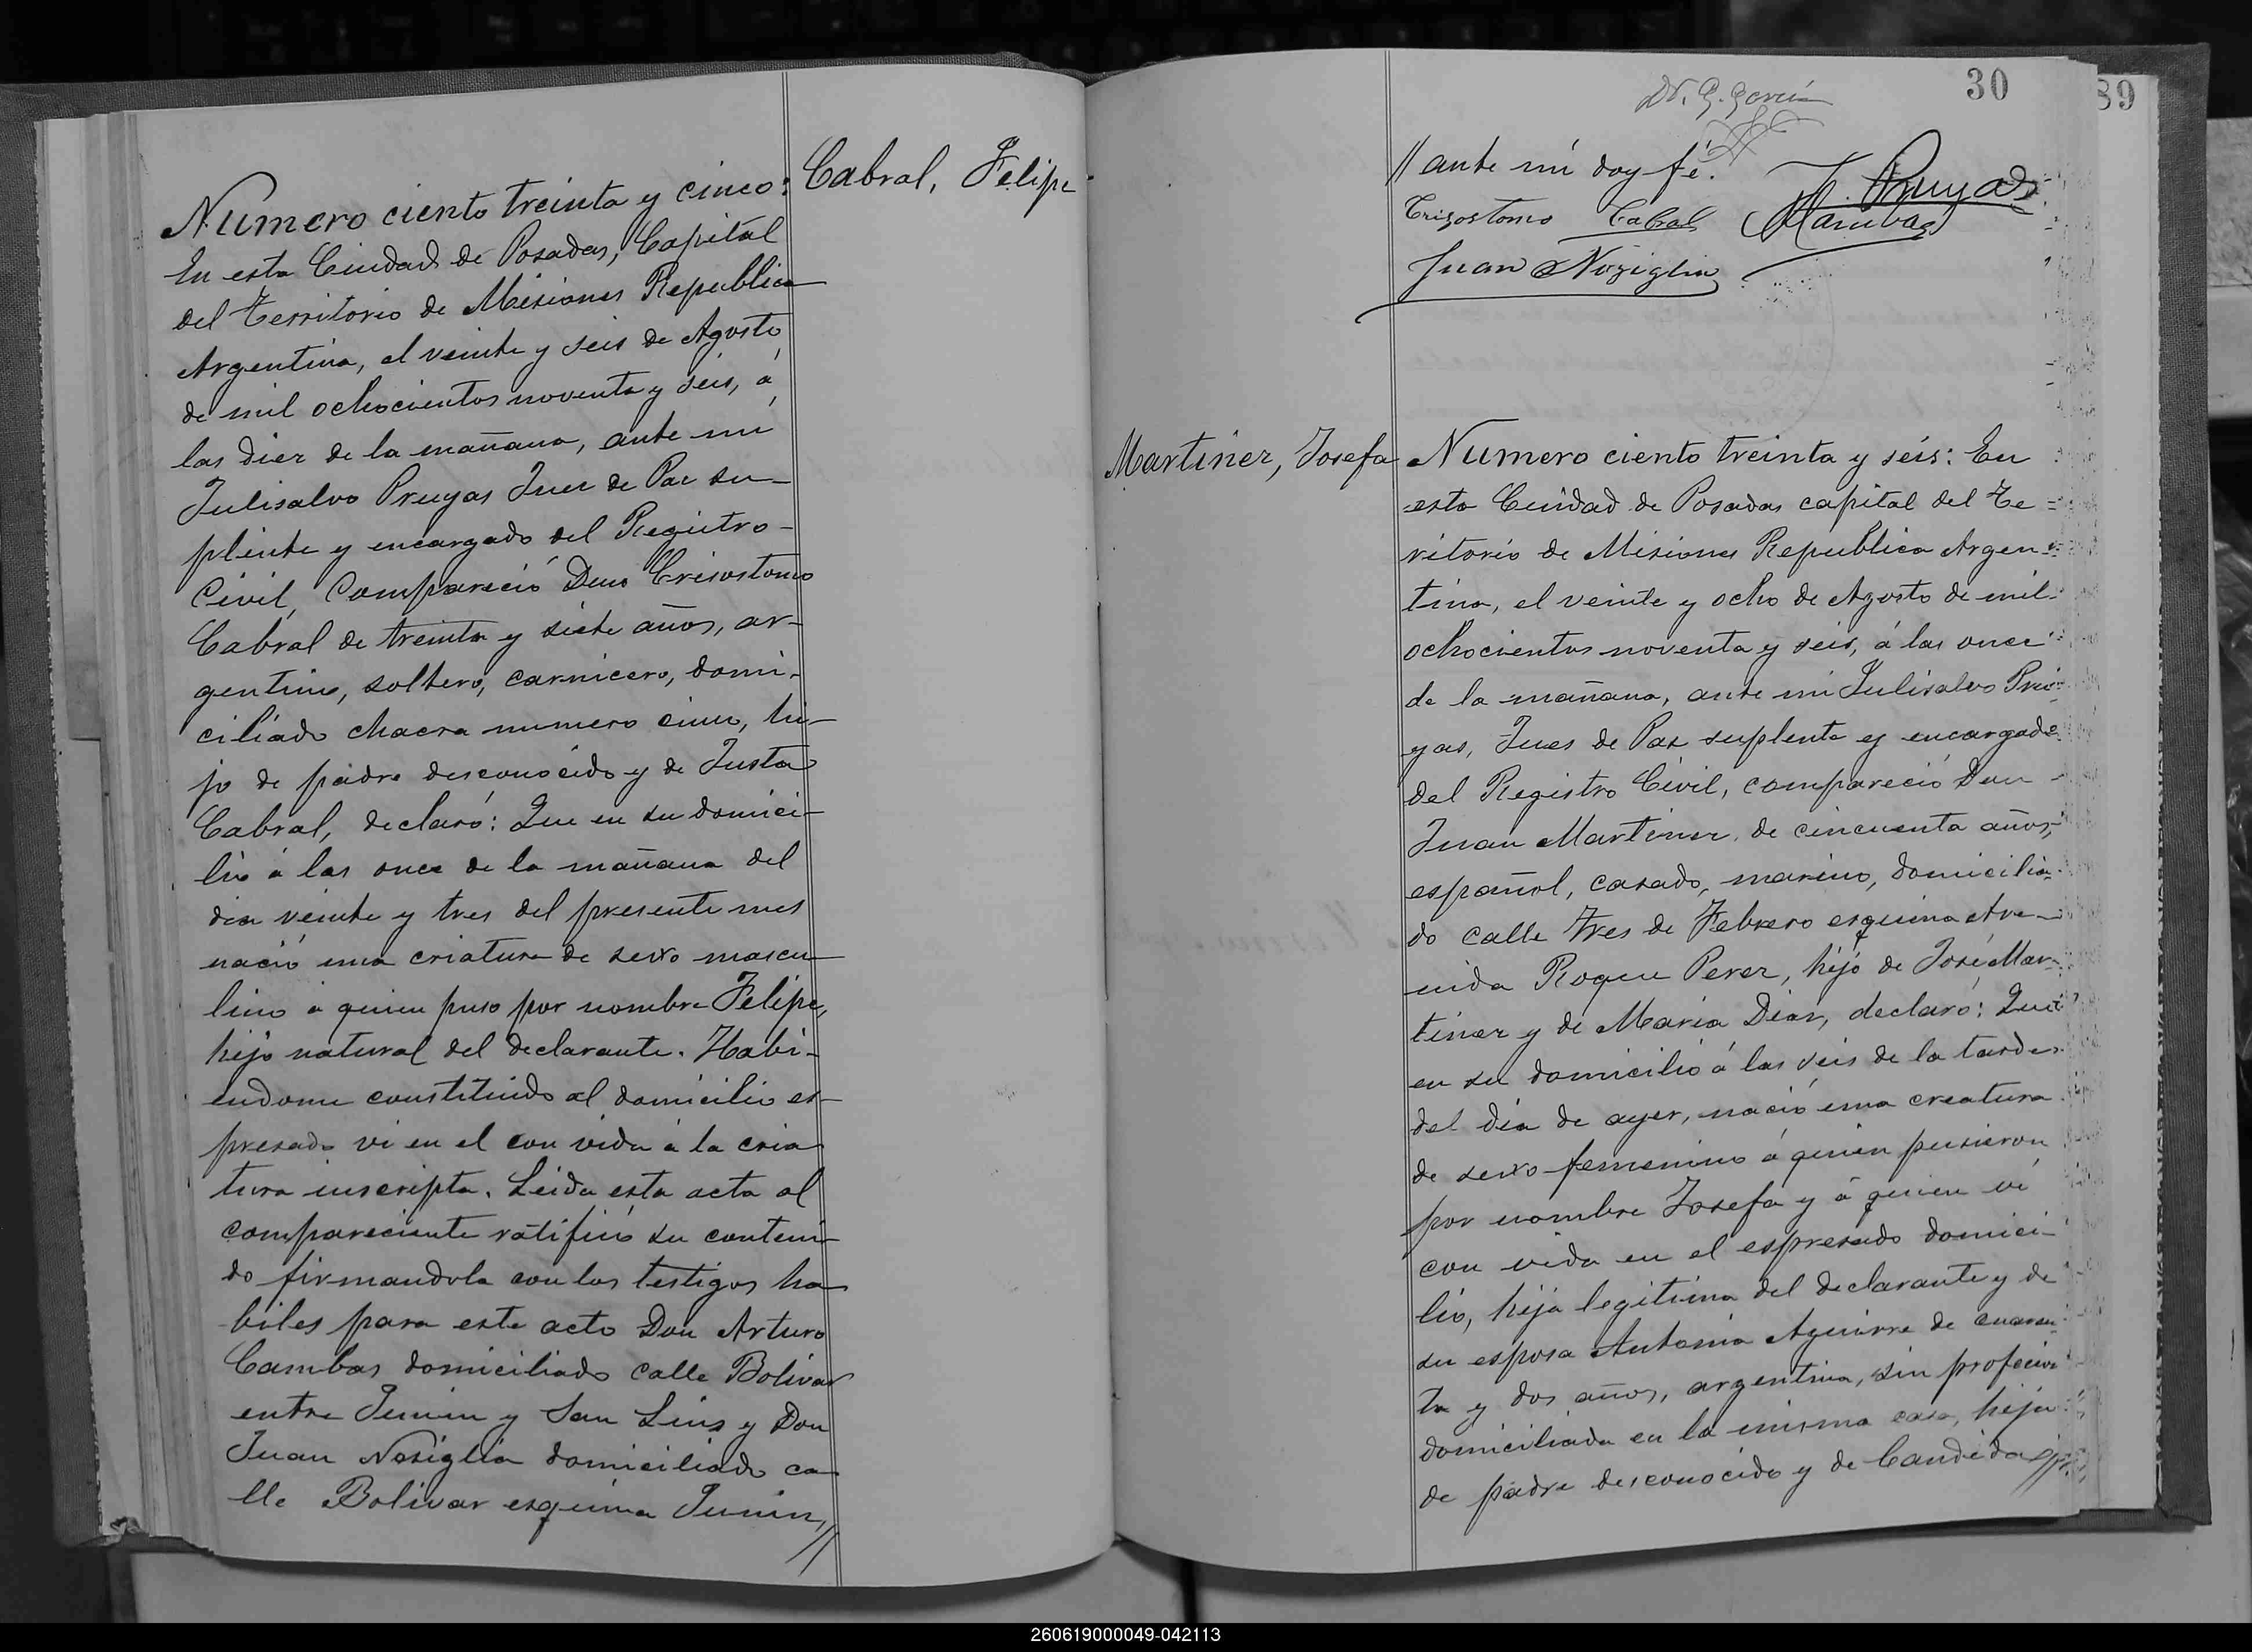 Numero ciento treinta y cinco:
Cabral, Felipe
En esta Ciudad de Posadas, Capital
del Territorio de Misiones Republica
Argentina, el veinte y seis de Agosto
de mil ochocientos noventa y seis, á
las diez de la mañana, ante mí
Julisalvo Pruyas Juez de Paz su-
plente y encargado del Registro-
Civil, Compareció Don Crisostomo
Cabral de treinta y siete años, ar-
gentino, soltero, carnicero, domi-
ciliado chacra numero cinco, hi-
jo de padre desconocido y de Justa
Cabral, declaró: Que en su domici-
lio á las once de la mañana del
dia veinte y tres del presente mes
nació una criatura de sexo mascu-
lino á quien puso por nombre Felipe,
hijo natural del declarante. Habi-
endome constituido al domicilio es-
presado vi en el con vida á la cria
tura inscripta. Leida esta acta al
compareciente ratificó su conteni-
do firmandola con los testigos ha
biles para este acto Don Arturo
Cambas domiciliado calle Bolivar
entre Junin y San Luis y Don
Juan Nosiglia domiciliado ca
lle Bolivar esquina Junin,
//
30
89
Dr. G. García
// ante mí doy fé.
J. Pruyas
Crizostomo Cabral
A Cambas
Juan Noziglia
Martinez, Josefa
Numero ciento treinta y seis: En
esta Ciudad de Posadas capital del Te=
ritorio de Misiones Republica Argen=
tina, el veinte y ocho de Agosto de mil
ochocientos noventa y seis, á las once
de la mañana, ante mi Julisalvo Pru-
yas, Juez de Paz suplente y encargado
del Registro Civil, compareció Don
Juan Martinez, de cincuenta años,
español, casado, marino, domicilia-
do calle Tres de Febrero esquina Ave-
nida Roque Perez, hijo de José Mar-
tinez y de Maria Diaz, declaró: Que
en su domicilio á las seis de la tarde
del dia de ayer, nació una creatura
de sexo femenino á quien pusieron
por nombre Josefa y á quien vi
con vida en el espresado domici-
lio, hija legitima del declarante y de
su esposa Antonia Aguirre de cuaren-
ta y dos años, argentina, sin profecion
domiciliada en la misma casa, hija
de padre desconocido y de Candida
260619000049-042113